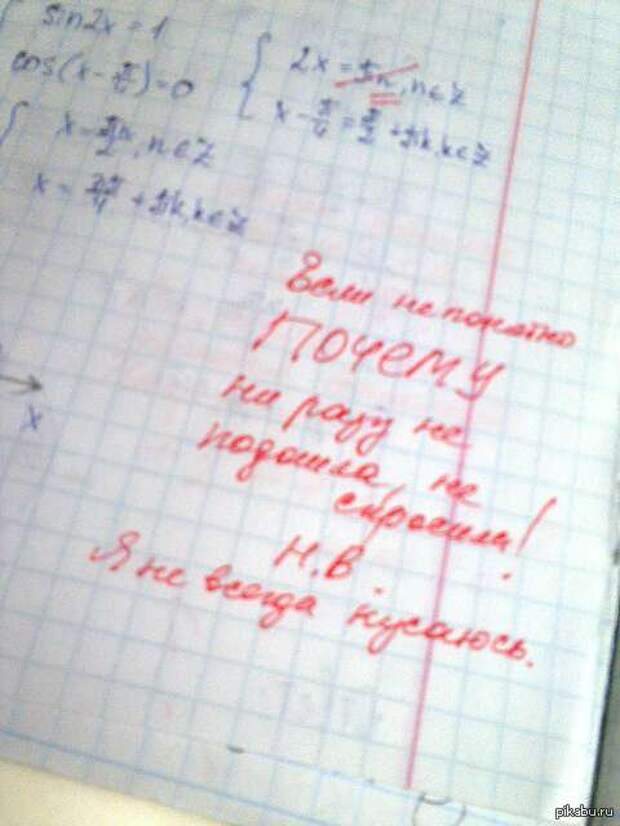 sin2x = 1
cos(x - π/4) = 0
2x = πn, n∈Z
x - π/4 = π/2 + πk, k∈Z
x = πn/2, n∈Z
x = 3π/4 + πk, k∈Z
x
Если не понятно
Почему
ни разу не
подошла, не
спросила!
Н.В.
Я не всегда кусаюсь.
pikabu.ru